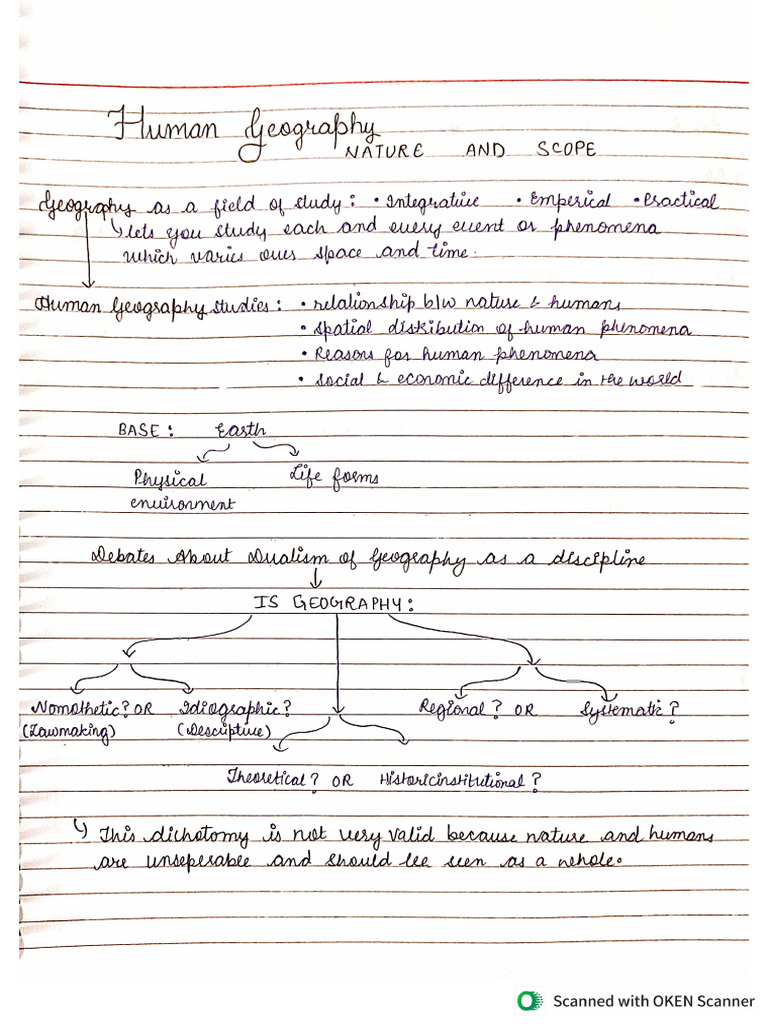 Human Geography
NATURE AND SCOPE
Geography as a field of study: • Integrative • Emperical • Practical
↳ lets you study each and every event or phenomena
which varies over space and time.
Human Geography studies: • relationship b/w nature & humans
• spatial distribution of human phenomena
• Reasons for human phenomena
• social & economic difference in the world
BASE: Earth
Physical Life forms
environment
Debates About Dualism of Geography as a discipline
IS GEOGRAPHY:
Nomothetic? OR Idiographic? Regional? OR Systematic?
(Lawmaking) (Descriptive)
Theoretical? OR Historicinstitutional?
↳ This dichotomy is not very valid because nature and humans
are unseperable and should be seen as a whole.
Scanned with OKEN Scanner